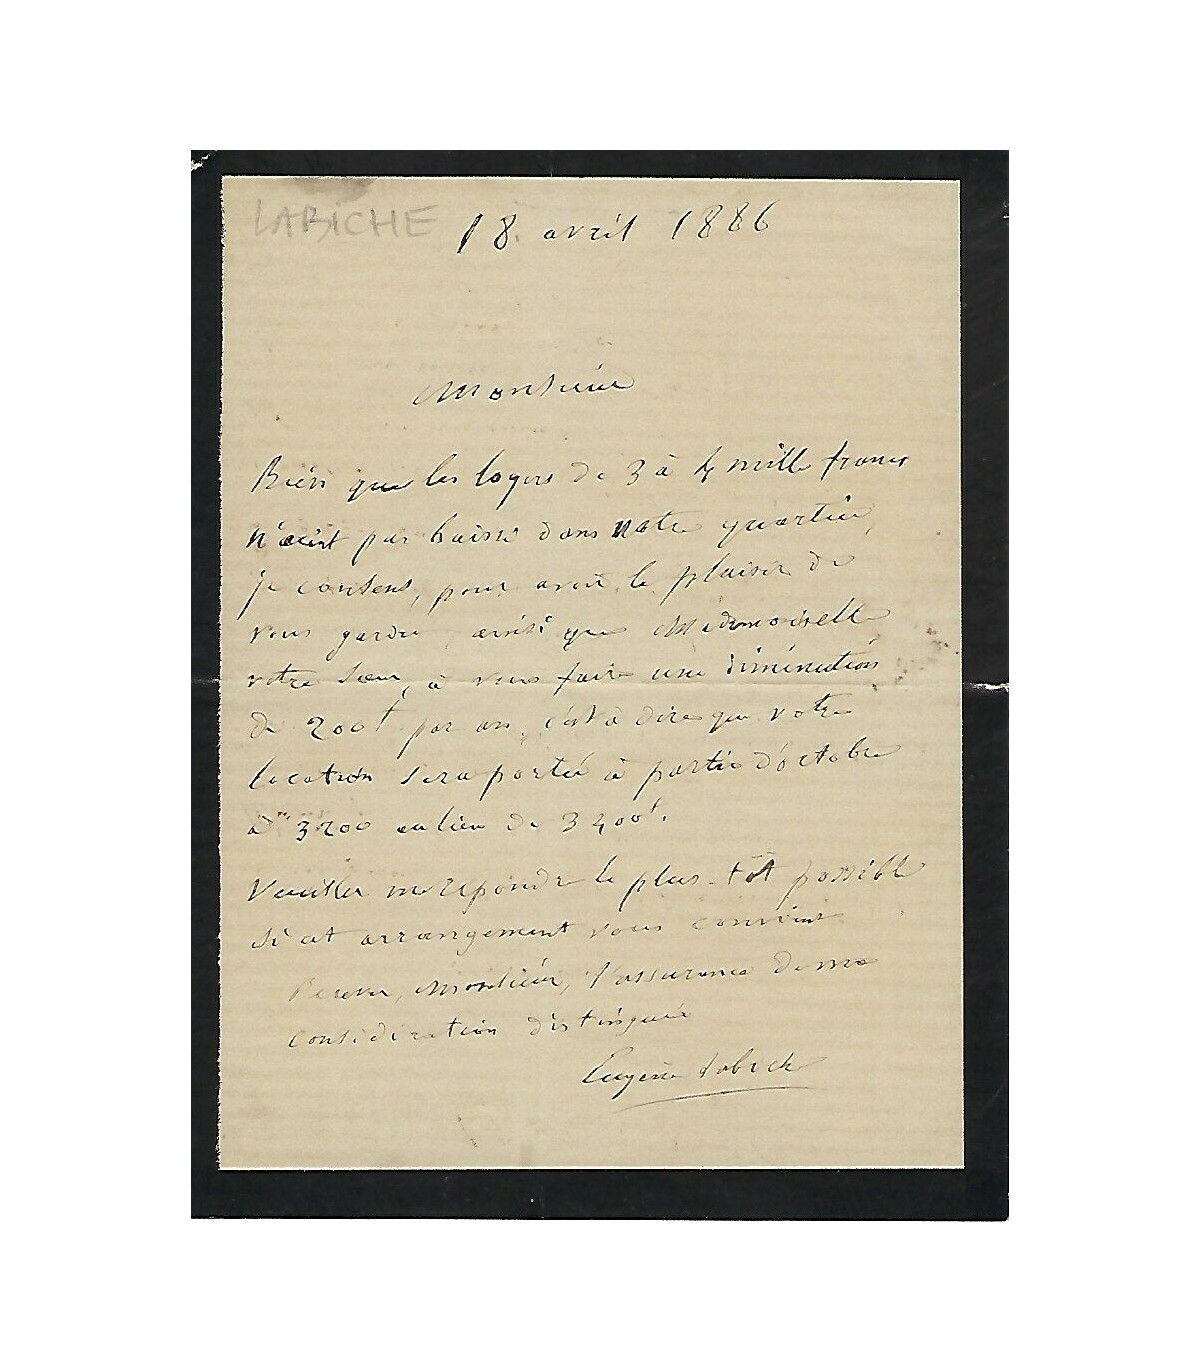 LABICHE
18 avril 1886
Monsieur
Bien que les loyers de 3 à 4 mille francs
n'aient pas baissé dans notre quartier,
je consens, pour avoir le plaisir de
vous garder, ainsi que Mademoiselle
votre sœur, à vous faire une diminution
de 200f par an, c'est à dire que votre
location sera portée à partir d'octobre
à 3200 au lieu de 3400f.
Veuillez me répondre le plus tôt possible
si cet arrangement vous convient
Recevez, Monsieur, l'assurance de ma
considération distinguée
Eugène Labiche